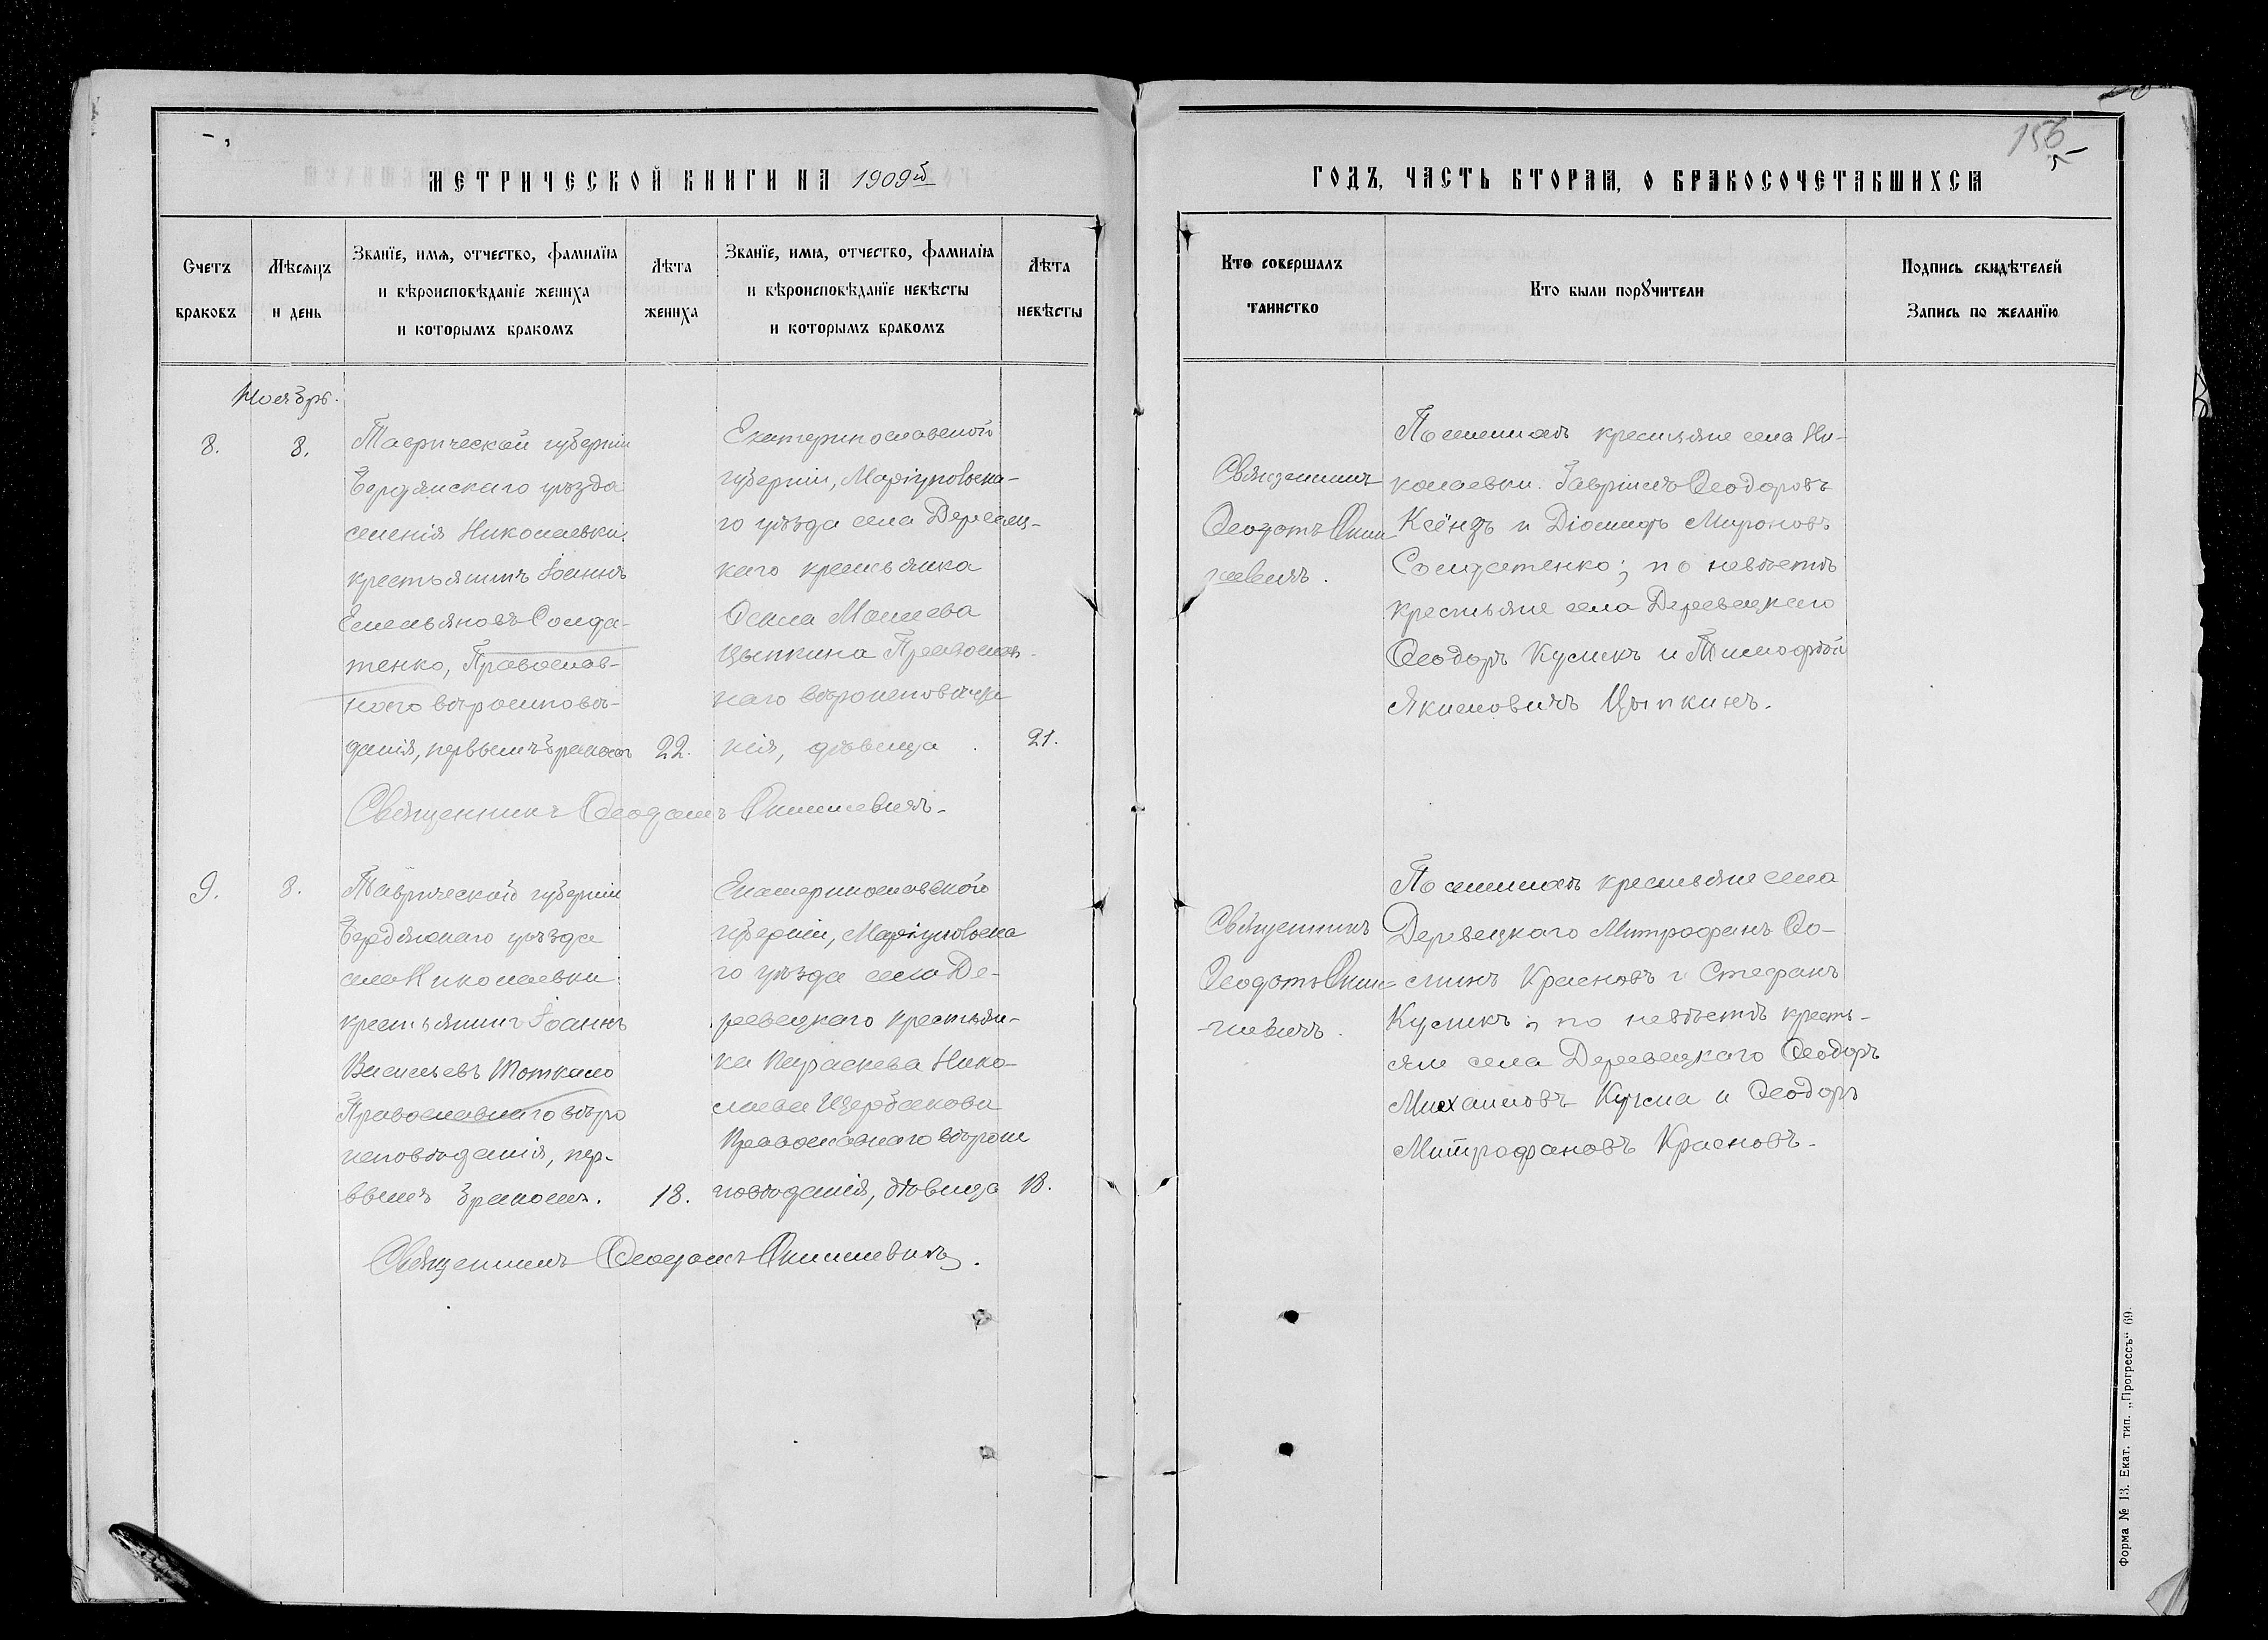 156
МЕТРИЧЕСКОЙ КНИГИ НА 1909й
ГОДЪ, ЧАСТЬ ВТОРАЯ, О БРАКОСОЧЕТАВШИХСЯ
Счетъ браковъ
Мѣсяцъ и день
Званїе, имя, отчество, фамилїя
и вѣроисповѣданїе жениха
и которымъ бракомъ
Лѣта жениха
Званїе, имя, отчество, фамилїя
и вѣроисповѣданїе невѣсты
и которымъ бракомъ
Лѣта невѣсты
Кто совершалъ
таинство
Кто были порꙋчители
Подпись свидѣтелей
Запись по желанїю
Ноябрь.
8.
8.
Таврической губерніи
Бердянскаго уѣзда
селенія Николаевки
крестьянинъ Іоаннъ
Емельяновъ Солда-
тенко, Православ-
наго вѣроисповѣ-
данія, первымъ бракомъ
22.
Екатеринославской
губерніи, Маріупольска-
го уѣзда села Деревец-
каго крестьянка
Моисеева
Цыпкина Православ-
наго вѣроисповѣда
нія, дѣвица
21.
Священникъ
Ѳеодотъ
По женихѣ крестьяне села Ни-
колаевки Гавріилъ Ѳеодоровъ
Ксёндзъ и Діомидъ Мироновъ
Солдатенко; по невѣстѣ
крестьяне села Деревецкаго
Ѳеодоръ Куликъ и Тимофѣй
Якимовичъ Цыпкинъ.
Священникъ Ѳеодотъ
9.
8.
Таврической губерніи
Бердянскаго уѣзда
села Николаевки
крестьянинъ Іоаннъ
Васильевъ Тоткало
Православнаго вѣро
исповѣданія, пер-
вымъ бракомъ.
18.
Екатеринославской
губерніи, Маріупольска
го уѣзда села Де-
ревецкаго крестьян-
ка Параскева Нико-
лаева Щербакова
Православнаго вѣроис
повѣданія, дѣвица
18.
Священникъ
Ѳеодотъ
По женихѣ крестьяне села
Деревецкаго Митрофанъ
Красновъ и Стефанъ
Куликъ; по невѣстѣ кресть-
яне села Деревецкаго Ѳеодоръ
Михаиловъ и Ѳеодоръ
Митрофановъ Красновъ.
Священникъ Ѳеодотъ
Форма № 13. Екат. тип. „Прогрессъ“ 69.